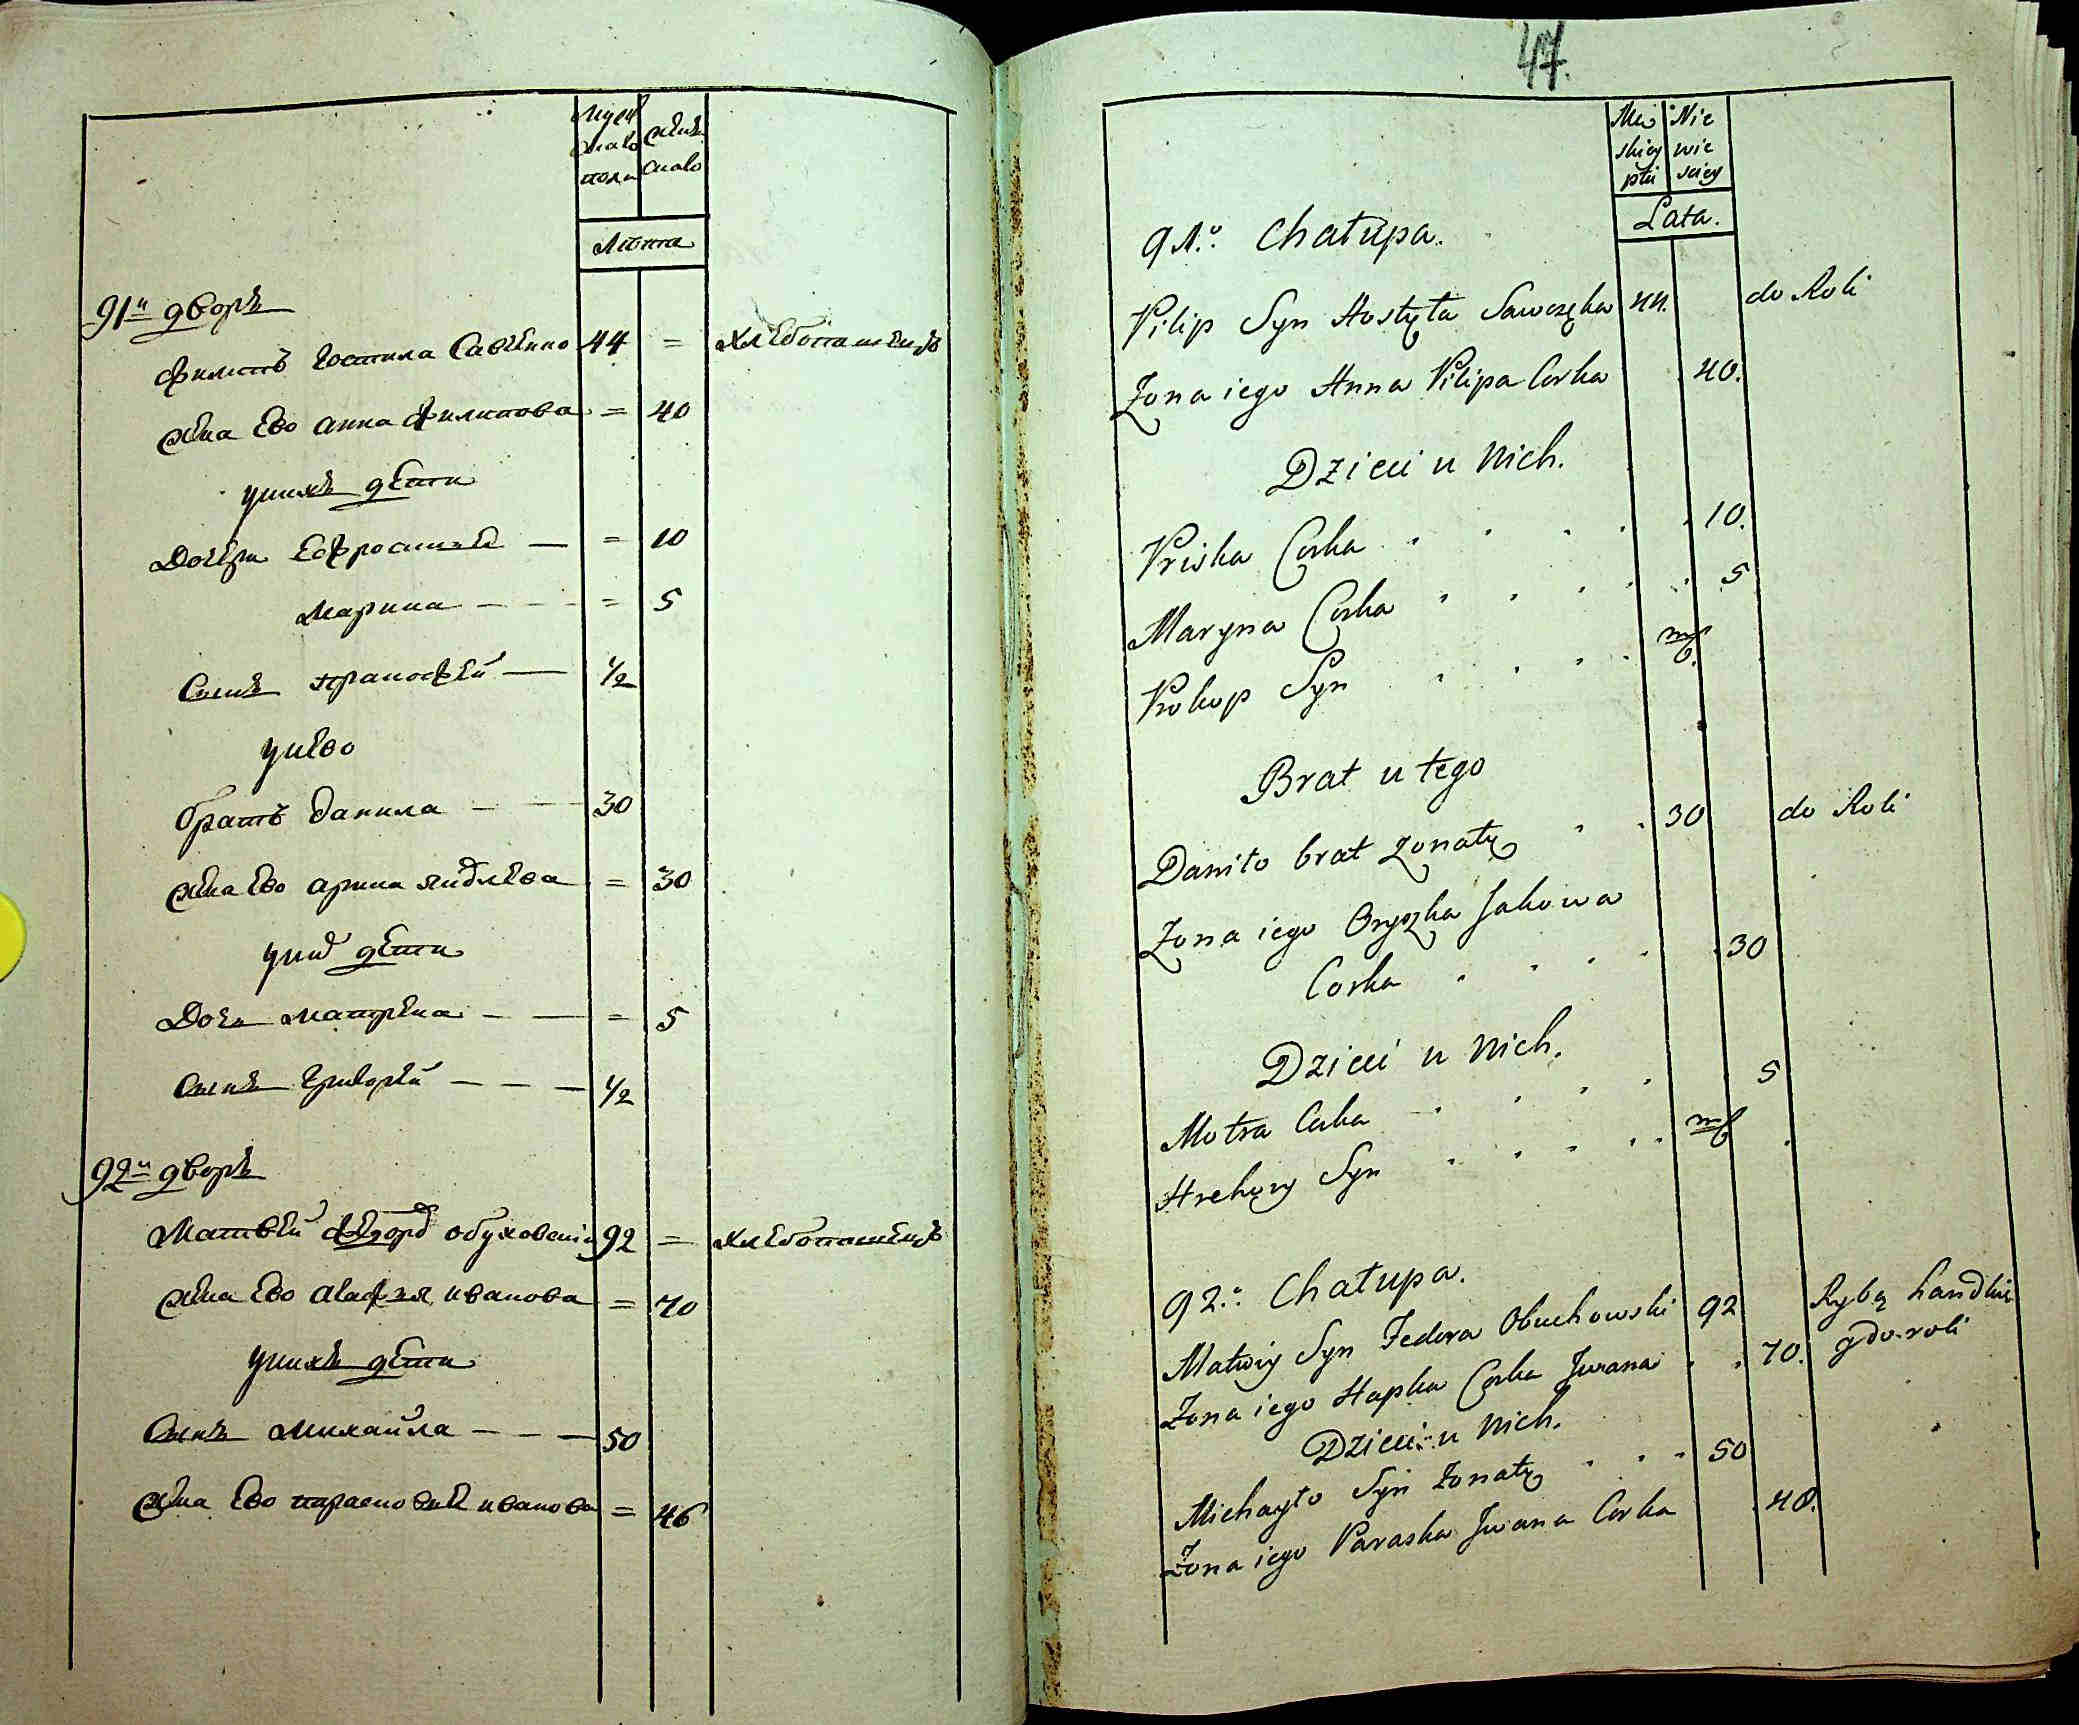 Муж
скаго
пола
Жен
скаго
Лѣта
91й дворъ
Филипъ Гостила Савченко 44 = хлебопашецъ
Жена Ево анна филипова = 40
у нихъ дети
Дочери Ефросиния — = 10
Марина — — = 5
Сынъ прокофей — 1/2
у нево
братъ данила — — 30
Жена Ево арина яковлева = 30
у них дети
Дочь матрена — — = 5
Сынъ григорей — — — 1/2
92й дворъ
Матвей федоров обуховски 92 = хлебопашецъ
Жена Ево агафия иванова = 70
у нихъ дети
Сынъ михайла — — — 50
Жена Ево парасковия иванова = 46
47.
Mę
skiey
płci
Nie
wie
sciey
Lata.
91.o Chałupa.
Filip Syn Hostyła Sawczęka 44. do Roli
Zona iego Anna Filipa Corka 40.
Dzieci u Nich.
Priska Corka 10.
Maryna Corka 5
Prokop Syn mſ.
Brat u tego
Daniło brat zonaty 30 do Roli
Zona iego Oryszka Jakowa
Corka 30
Dzieci u Nich.
Motra Corka 5
Hrehory Syn mſ
92.o Chałupa.
Matwiy Syn Fedora Obuchowski 92 Rybą handluie
Zona iego Hapka Corka Iwana 70. y do roli
Dzieci u Nich.
Michayło Syn Zonaty 50
Zona iego Paraska Iwana Corka 40.